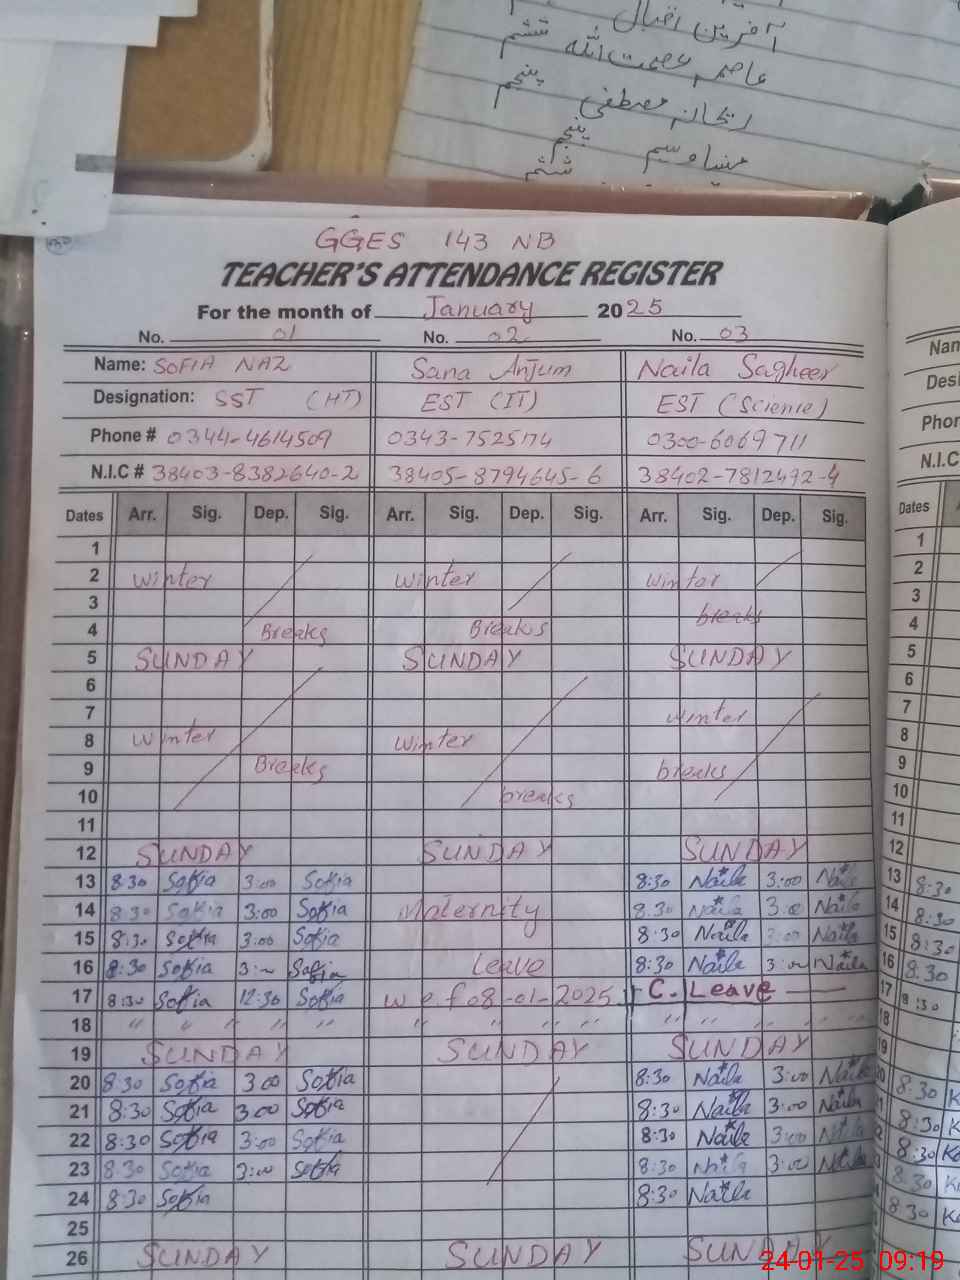 آفرین اقبال
عاصمہ عصمت اللہ ششم
ریحان مصطفی پنجم
پنجم
ششم
GGES 143 NB
TEACHER'S ATTENDANCE REGISTER
For the month of January 2025
No. 01 No. 02 No. 03
Name: SOFIA NAZ Sana Anjum Naila Sagheer
Designation: SST (HT) EST (IT) EST (Science)
Phone # 0344-4614509 0343-7525174 0300-6069711
N.I.C # 38403-8382640-2 38405-8794645-6 38402-7812492-4
Dates Arr. Sig. Dep. Sig. Arr. Sig. Dep. Sig. Arr. Sig. Dep. Sig. Dates
1 1
2 winter winter winter 2
3 breaks 3
4 Breaks Breaks 4
5 SUNDAY SUNDAY SUNDAY 5
6 6
7 winter 7
8 winter winter 8
9 Breaks breaks 9
10 breaks 10
11 11
12 SUNDAY SUNDAY SUNDAY 12
13 8:30 Sofia 3:00 Sofia 8:30 Naila 3:00 Naila 13 8:30
14 8:30 Sofia 3:00 Sofia Maternity 8:30 Naila 3:00 Naila 14 8:30
15 8:30 Sofia 3:00 Sofia 8:30 Naila 3:00 Naila 15 8:30
16 8:30 Sofia 3:00 Sofia Leave 8:30 Naila 3:00 Naila 16 8:30
17 8:30 Sofia 12:30 Sofia w.e.f 08-01-2025 C. Leave 17 8:30
18 " " " " " " " " " " " " " " 18
19 SUNDAY SUNDAY SUNDAY 19
20 8:30 Sofia 3:00 Sofia 8:30 Naila 3:00 Naila 20 8:30
21 8:30 Sofia 3:00 Sofia 8:30 Naila 3:00 Naila 8:30
22 8:30 Sofia 3:00 Sofia 8:30 Naila 3:00 Naila 8:30
23 8:30 Sofia 3:00 Sofia 8:30 Naila 3:00 Naila 8:30
24 8:30 Sofia 8:30 Naila 8:30
25
26 SUNDAY SUNDAY SUNDAY
24-01-25 09:19